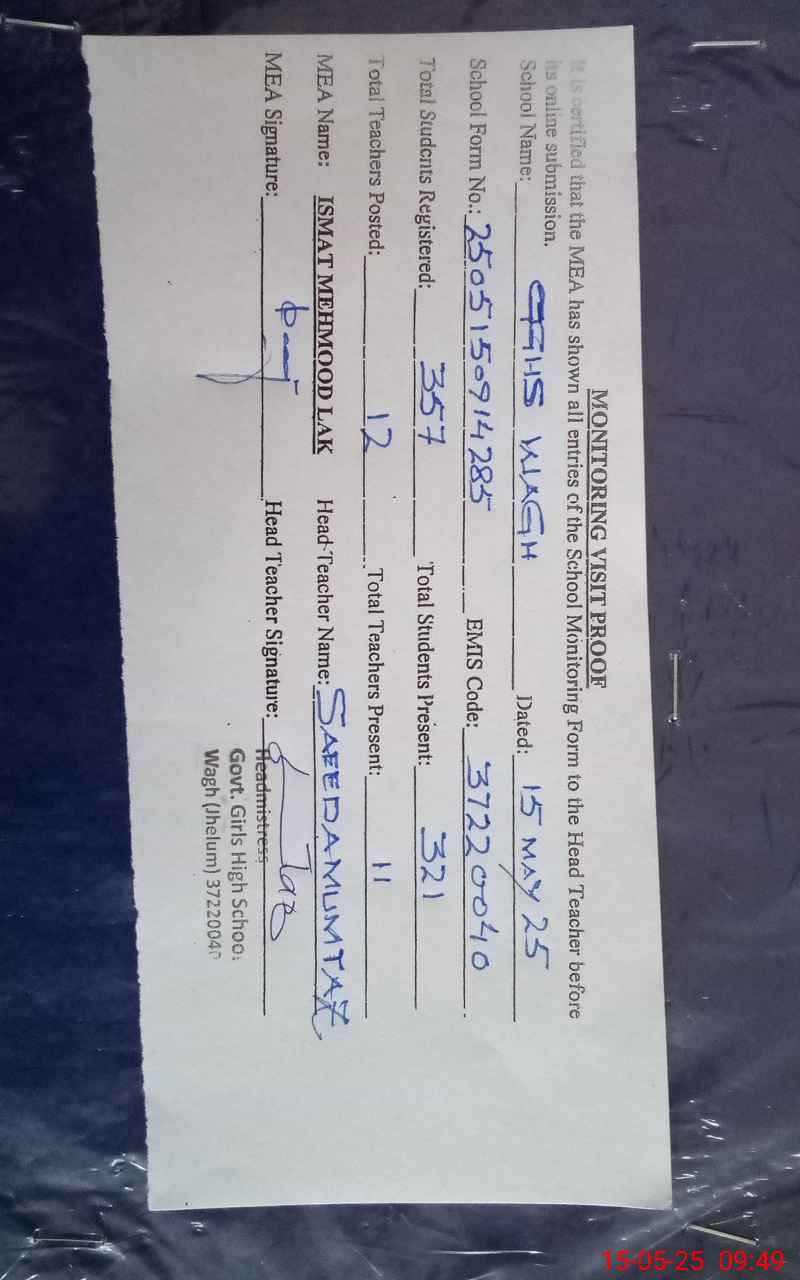 MONITORING VISIT PROOF
It is certified that the MEA has shown all entries of the School Monitoring Form to the Head Teacher before
its online submission.
School Name: GGHS WAGH Dated: 15 MAY 25
School Form No.: 2505150914285 EMIS Code: 37220040
Total Students Registered: 357 Total Students Present: 321
Total Teachers Posted: 12 Total Teachers Present: 11
MEA Name: ISMAT MEHMOOD LAK Head-Teacher Name: SAEEDA MUMTAZ
MEA Signature: Head Teacher Signature:
Headmistress
Govt. Girls High School
Wagh (Jhelum) 37220040
15-05-25 09:49